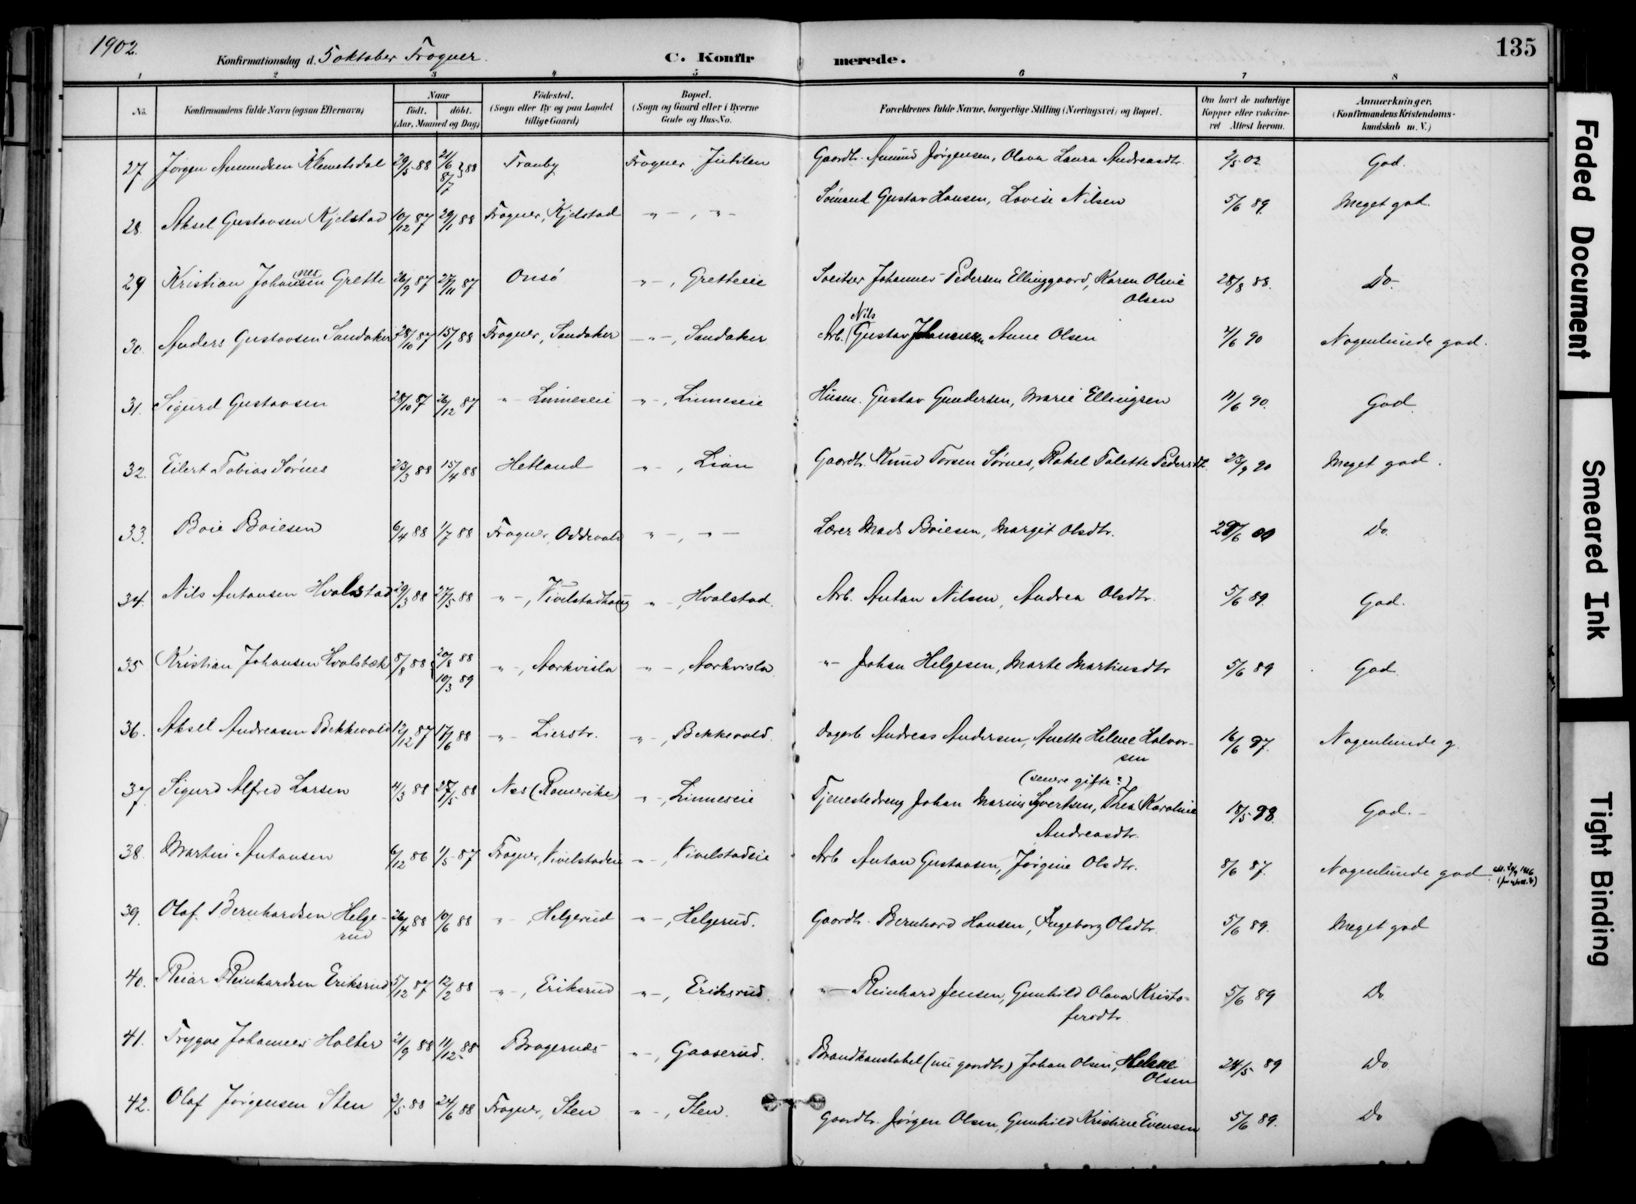 1902.
Konfirmationsdag d. 5 oktober Frogner.
C. Konfir
merede.
135
1 2 3 4 5 6 7 8
No. Konfirmandens fulde Navn (ogsaa Efternavn) Naar født. døbt. (Aar, Maaned og Dag) Fødested. (Sogn eller By og paa Landet tillige Gaard) Bopæl. (Sogn og Gaard eller i Byerne Gade og Hus-No. Forældrenes fulde Navne, borgerlige Stilling (Næringsvei) og Bopæl. Om havt de naturlige Kopper eller vaccineret Attest herom. Anmærkninger. (Konfirmandens Kristendomskundskab m. V.)
27 Jørgen Amundsen Klemetsdal 29/5 88 21/6 88 8/7 Tranby Frogner Gaardbr. Amund Jørgensen, Olava Laura Andreasdtr. 2/5 02 God.
28. Aksel Gustavsen Kjelstad 10/12 87 29/1 88 Frogner, Kjelstad " - , " - Sømand Gustav Hansen, Lovise Nilsen 5/6 89. Meget god.
29 Kristian Johannesen Grette 26/9 87 27/11 87 Onsø " - , Gretteeie Johannes Pedersen Ellinggaard, Karen Oline Olsen 28/8 88. Do.
30. Anders Gustavsen Sandaker 28/10 87 15/1 88 Frogner, Sandaker " - , Sandaker Arb. (Nils Gustav Johansen Anne Olsen 2/6 90 Nogenlunde god.
31. Sigurd Gustavsen 28/10 87 26/12 87 " - Linneseie " - , Linneseie Husm. Gustav Gundersen, Marie Ellingsen 11/6 90. God.
32. Eilert Tobias Sørnes 23/3 88 15/4 88 Hetland " - , Lian Gaardbr. Knud Torsen Sørnes, Rakel Talette Pedersdtr. 23/9 90 Meget god.
33. Boie Boiesen 6/4 88 1/7 88 Frogner, Oddevald " - , " - Lærer Mads Boiesen, Margit Olsdtr. Do.
34. Nils Antonsen Hvalstad 29/3 88 27/5 88 " - , Vivelstadhaug " - , Hvalstad. Arb. Anton Nilsen, Andrea Olsdtr. 5/6 89. God.
35 Kristian Johansen Hvalsbæk 8/8 88 20/8 88 10/3 89 " - , Narkvisla " - , Narkvisla. " - Johan Helgesen, Marte Martinsdtr 5/6 89 God.
36. Aksel Andreasen Bekkevold 12/12 87 17/6 88 " - Lierstr. " - , Bekkevold. Dagarb Andreas Andersen, Anette Helene Halvorsen 16/6 97. Nogenlunde g.
37. Sigurd Alfred Larsen 4/3 88 27/5 88 Nes (Romerike) " - , Linneseie Tjenestedreng Johan Marius Syvertsen, Thea Karoline Andreasdtr. (senere gifte?) 18/5 98. God.
38. Martin Antonsen 6/12 86 1/5 87 Frogner, Vivelstadeie " - , Vivelstadeie Arb Anton Gustavsen, Jørgine Olsdtr. 8/6 87. Nogenlunde god
39. Olaf Bernhardsen Helgerud 26/4 88 10/6 88 " - , Helgerud " - , Helgerud. Gaardbr. Bernhard Hansen, Ingeborg Olsdtr. 5/6 89. Meget god
40. Reiar Reinhardsen Eriksrud 5/12 87 12/2 88 " - , Eriksrud " - , Eriksrud. " - Reinhard Jensen, Gunhild Olava Kristofersdtr 5/6 89 Do
41. Trygve Johannes Holter 21/9 88 11/12 88 Bragernæs " - , Gaaserud. Brandkonstabel (nu gaardbr) Johan Olsen, Helene Olsen 24/5 89 Do
42. Olaf Jørgensen Sten 2/5 88 24/6 88 Frogner, Sten " - , Sten. Gaardbr. Jørgen Olsen, Gunhild Kristine Evensen 5/6 89. Do
Faded Document
Smeared Ink
Tight Binding